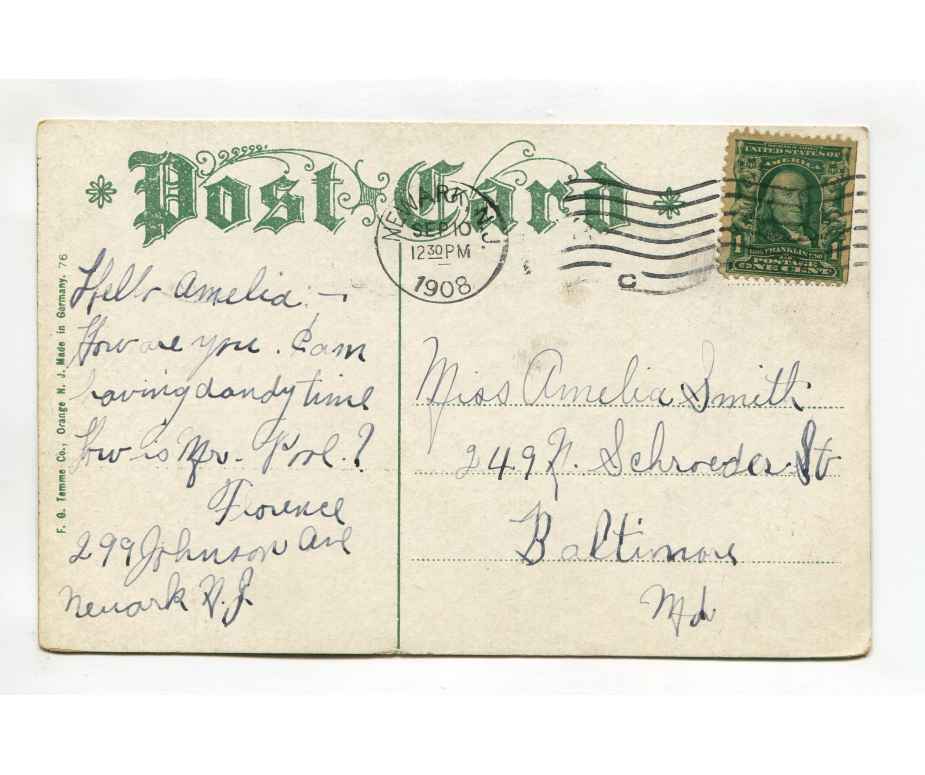 Post Card
NEWARK, N.J.
SEP 10
12 30 PM
1908
C
UNITED STATES OF
AMERICA
1 FRANKLIN 1
POSTAGE
ONE CENT
F. G. Temme Co., Orange N. J. Made in Germany. 76
Hello Amelia: -
How are you. I am
having dandy time
How is Mr. Pool.?
Florence
299 Johnson Ave
Newark N.J.
Miss Amelia Smith
249 N. Schroeder St
Baltimore
Md